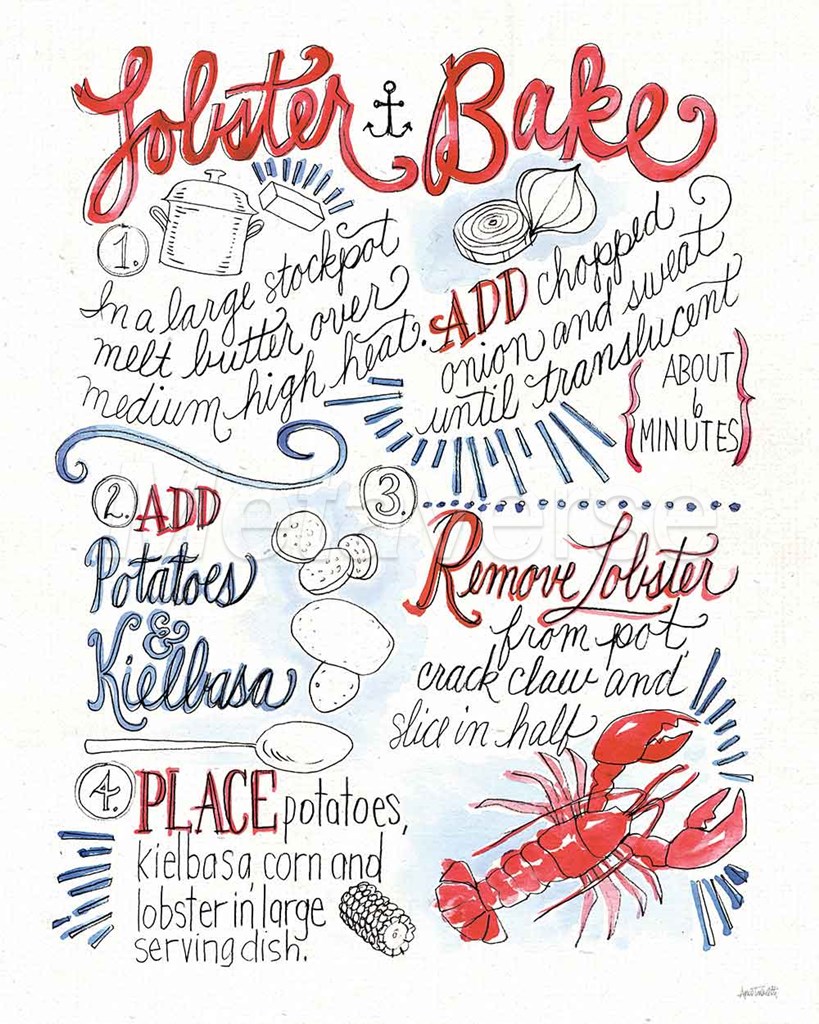 Lobster Bake
1.
In a large stockpot
melt butter over
medium high heat.
ADD chopped
onion and sweat
until translucent
{ABOUT
6
MINUTES}
2. ADD
Potatoes
&
Kielbasa
3.
Remove Lobster
from pot,
crack claw and
slice in half
4. PLACE potatoes,
kielbasa, corn and
lobster in large
serving dish.
Metaverse